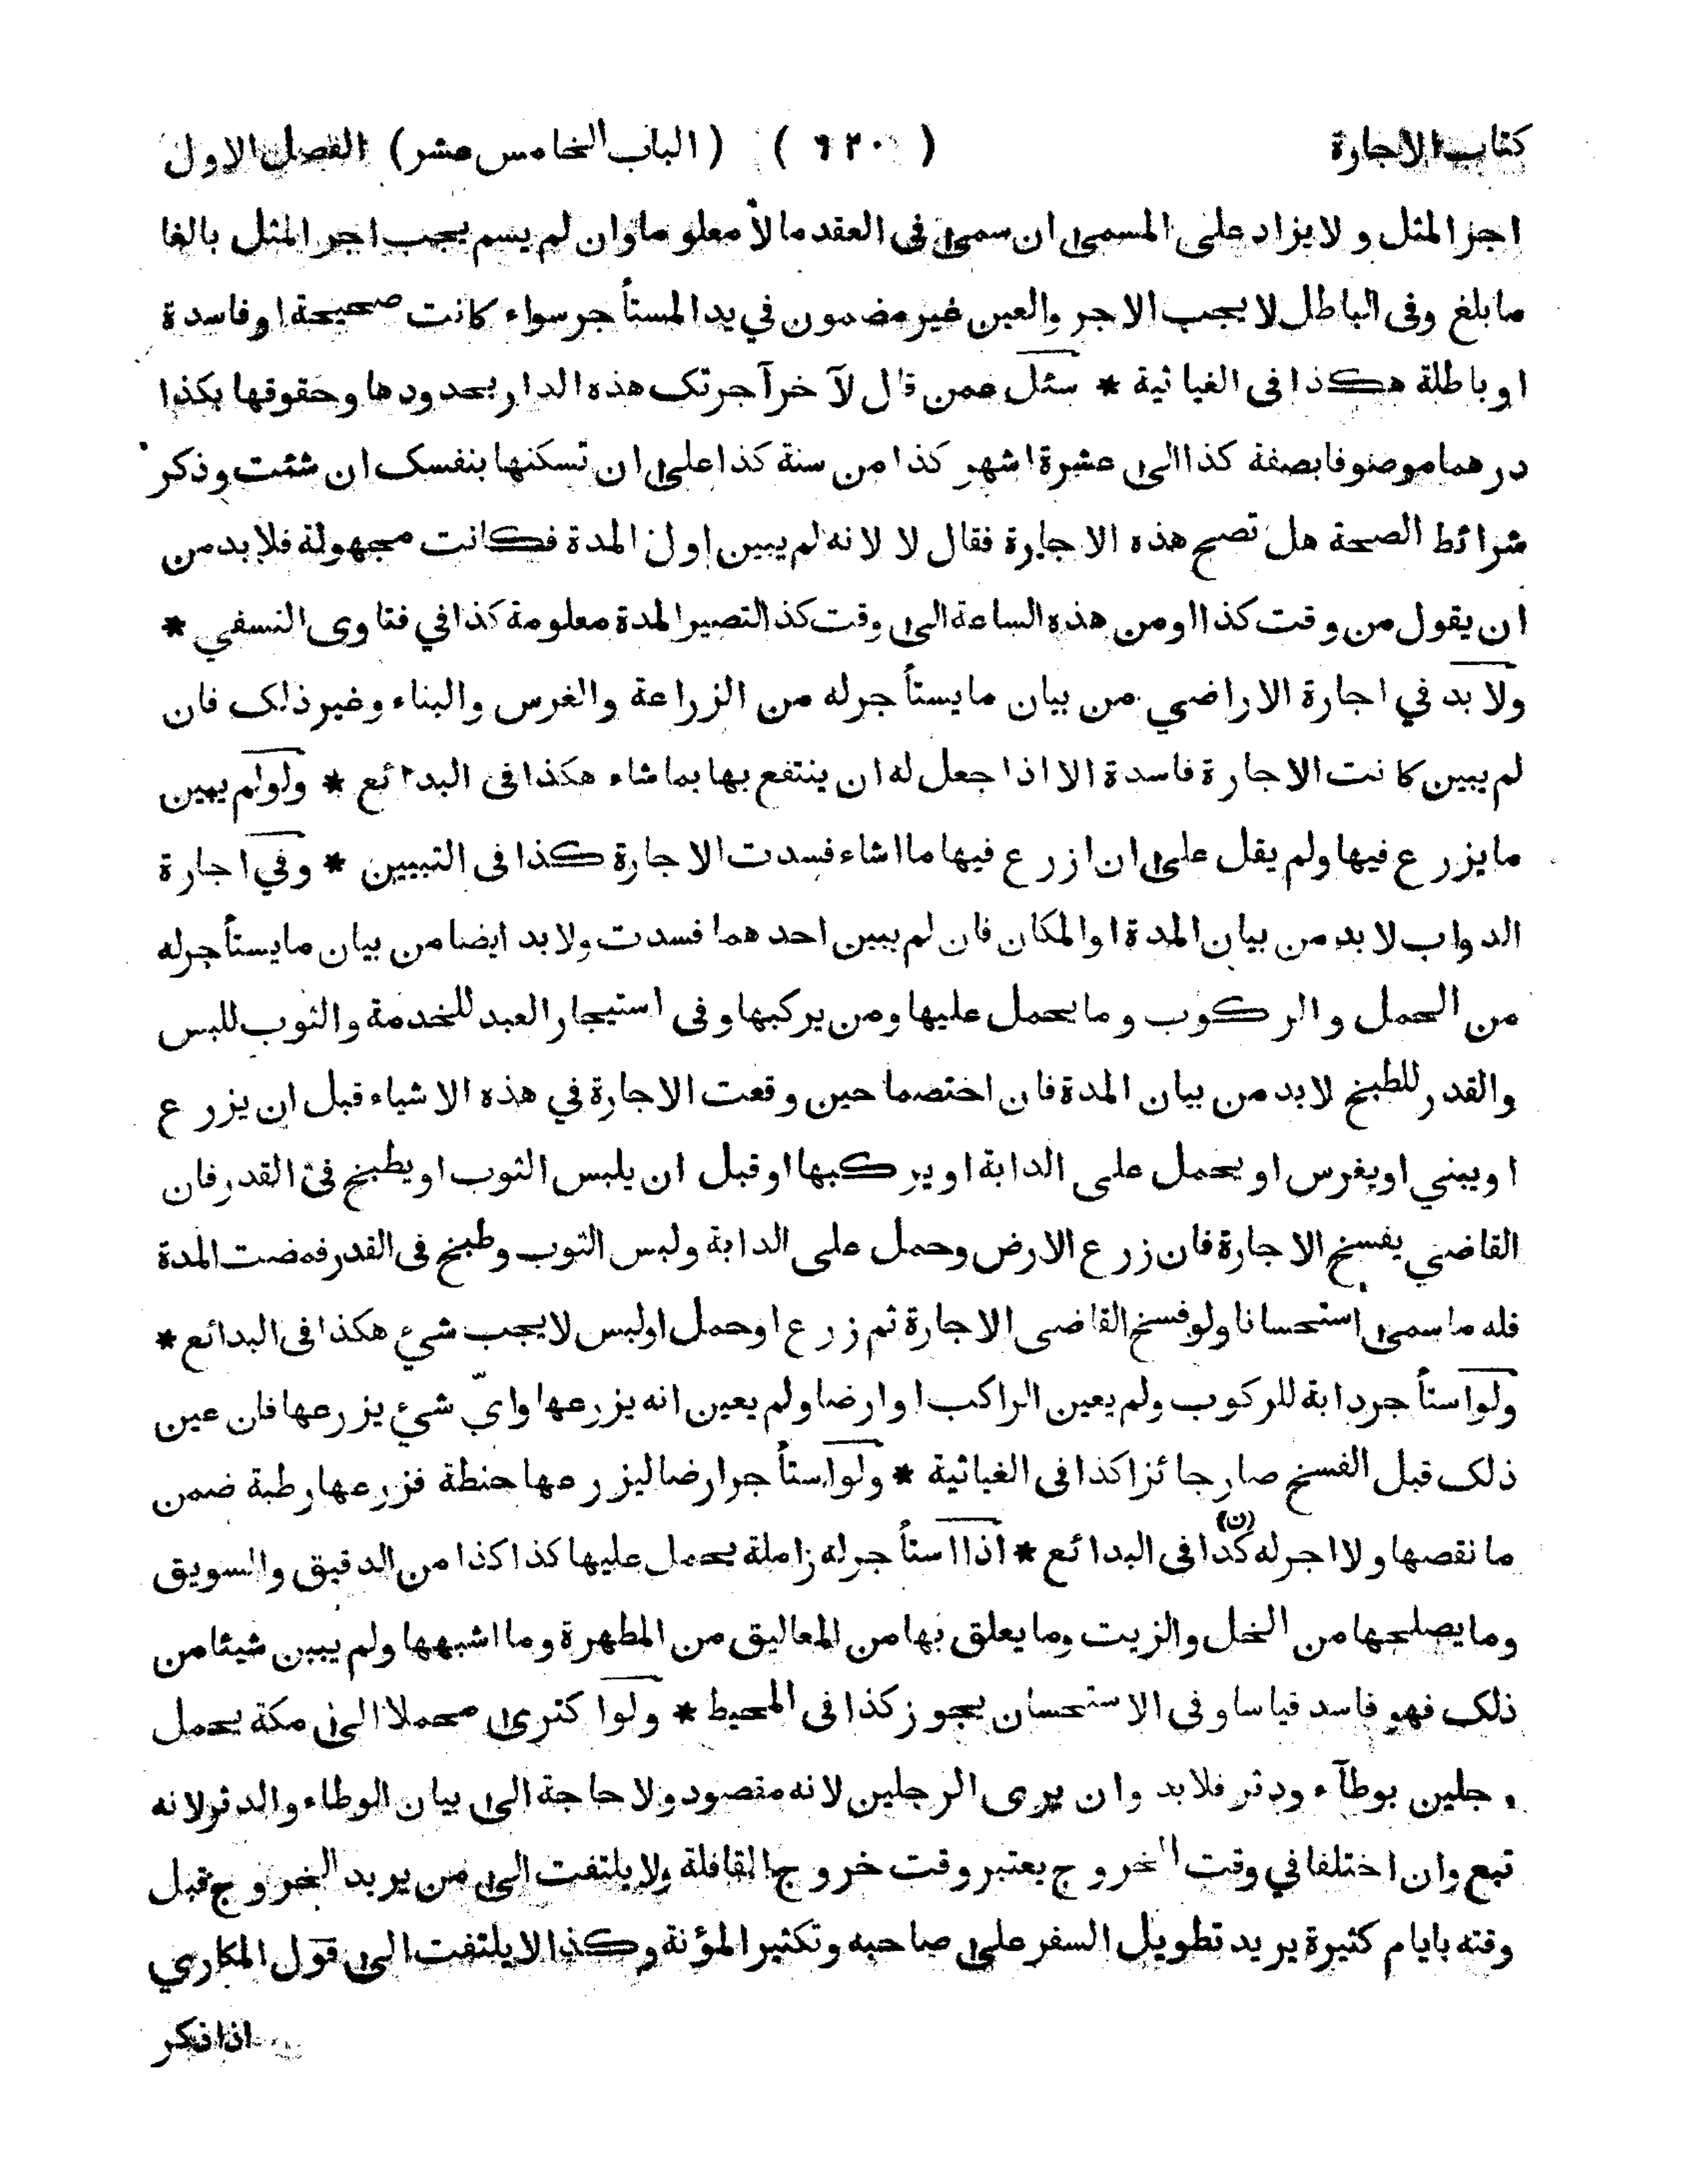 كتاب الاجارة ( ٦٢٠ ) ( الباب الخامس عشر ) الفصل الاول
اجر المثل ولا يزاد على المسمى ان سمى فى العقد مالا معلوما وان لم يسم يجب اجر المثل بالغا
ما بلغ وفى الباطل لا يجب الاجر والعين غير مضمون في يد المستأجر سواء كانت صحيحة او فاسدة
او باطلة هكذا فى الغياثية * سئل عمن قال لآخر آجرتك هذه الدار بحدودها وحقوقها بكذا
درهما موصوفا بصفة كذا الى عشرة اشهر كذا من سنة كذا على ان تسكنها بنفسك ان شئت وذكر
شرائط الصحة هل تصح هذه الاجارة فقال لا لانه لم يبين اول المدة فكانت مجهولة فلا بد من
ان يقول من وقت كذا او من هذه الساعة الى وقت كذا لتصير المدة معلومة كذا في فتاوى النسفي *
ولا بد في اجارة الاراضي من بيان ما يستأجر له من الزراعة والغرس والبناء وغير ذلك فان
لم يبين كانت الاجارة فاسدة الا اذا جعل له ان ينتفع بها بما شاء هكذا فى البدائع * ولو لم يبين
ما يزرع فيها ولم يقل على ان ازرع فيها ما اشاء فسدت الاجارة كذا فى التبيين * وفي اجارة
الدواب لا بد من بيان المدة او المكان فان لم يبين احدهما فسدت ولا بد ايضا من بيان ما يستأجر له
من الحمل والركوب وما يحمل عليها ومن يركبها وفى استيجار العبد للخدمة والثوب للبس
والقدر للطبخ لا بد من بيان المدة فان اختصما حين وقعت الاجارة في هذه الاشياء قبل ان يزرع
او يبني او يغرس او يحمل على الدابة او يركبها او قبل ان يلبس الثوب او يطبخ فى القدر فان
القاضي يفسخ الاجارة فان زرع الارض وحمل على الدابة ولبس الثوب وطبخ فى القدر فمضت المدة
فله ما سمى استحسانا ولو فسخ القاضى الاجارة ثم زرع او حمل او لبس لا يجب شيء هكذا فى البدائع *
ولو استأجر دابة للركوب ولم يعين الراكب او ارضا ولم يعين انه يزرعها واىّ شيء يزرعها فان عين
ذلك قبل الفسخ صار جائزا كذا فى الغياثية * ولو استأجر ارضا ليزرعها حنطة فزرعها رطبة ضمن
ما نقصها ولا اجر له كذا (ن) فى البدائع * اذا استأجر له زاملة يحمل عليها كذا كذا من الدقيق والسويق
وما يصلحها من الخل والزيت وما يعلق بها من المعاليق من المطهرة وما اشبهها ولم يبين شيئا من
ذلك فهو فاسد قياسا وفى الاستحسان يجوز كذا فى المحيط * ولو اكترى محملا الى مكة يحمل
رجلين بوطآء ودثر فلا بد وان يرى الرجلين لانه مقصود ولا حاجة الى بيان الوطاء والدثر لانه
تبع وان اختلفا في وقت الخروج يعتبر وقت خروج القافلة ولا يلتفت الى من يريد الخروج قبل
وقته بايام كثيرة يريد تطويل السفر على صاحبه وتكثير المؤنة وكذا لا يلتفت الى قول المكاري
اذا ذكر